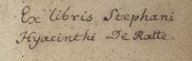 Ex libris Stephani
Hyacinthi De Ratte.